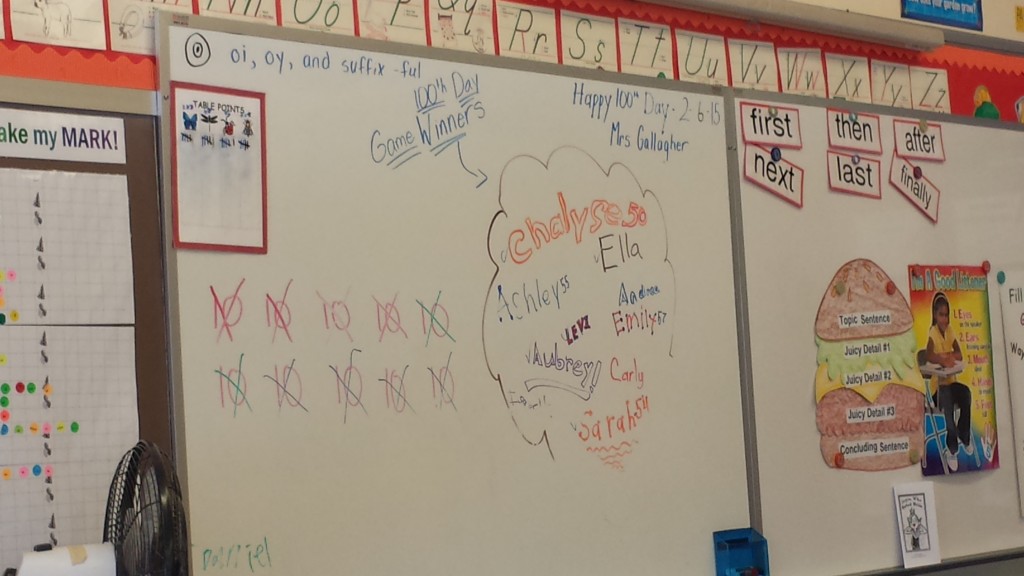 Rr Ss Tt Uu Vv Ww Xx Yy Zz
ake my MARK!
oi, oy, and suffix -ful
TABLE POINTS
100th Day
Game Winners
Happy 100th Day - 2-6-15
Mrs Gallagher
Chalyse 50
Ella
Achley 55
Emily 57
LEVI
Aubrey!
Carly
Sarah 54
10 10 10 10 10
10 10 10 10 10
first
then
after
next
last
finally
Topic Sentence
Juicy Detail #1
Juicy Detail #2
Juicy Detail #3
Concluding Sentence
Good Listener
1. Eyes
2. Ears
Fill